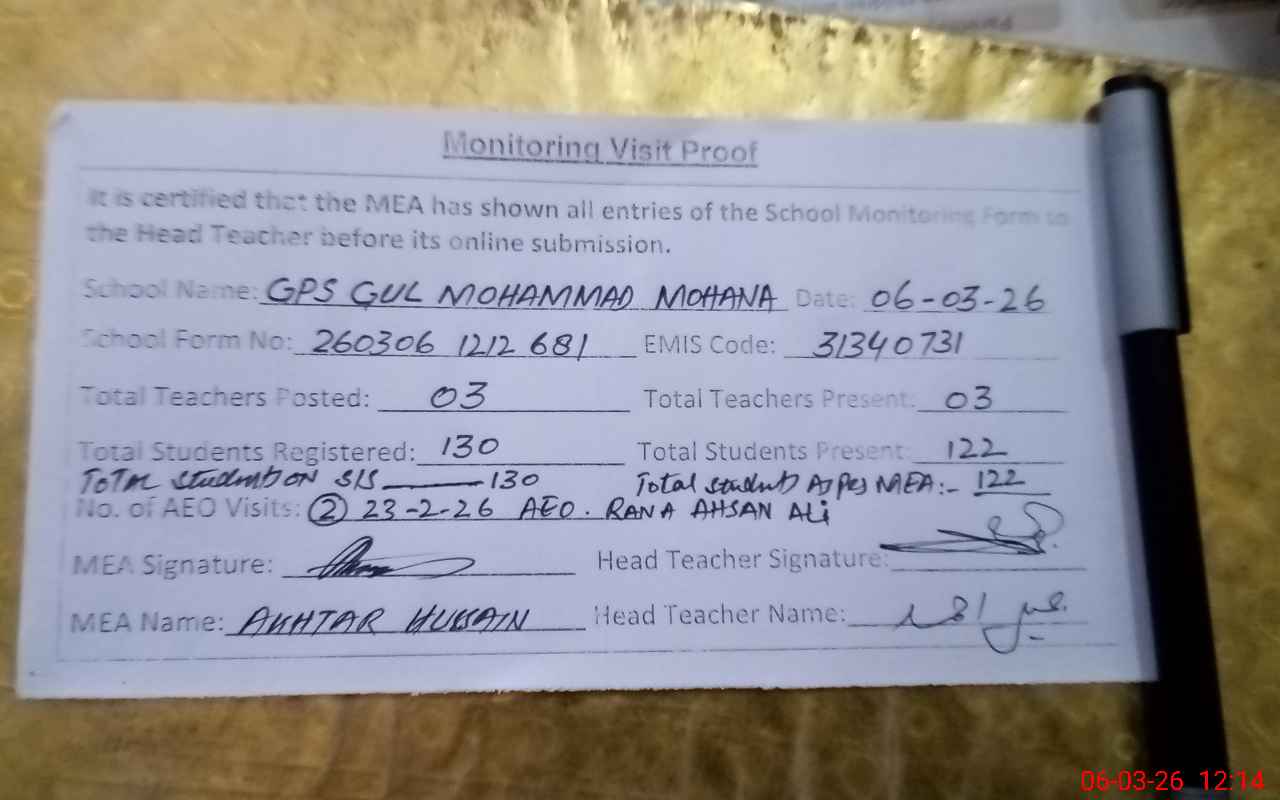 Monitoring Visit Proof
It is certified that the MEA has shown all entries of the School Monitoring Form to
the Head Teacher before its online submission.
School Name: GPS GUL MOHAMMAD MOHANA Date: 06-03-26
School Form No: 260306 1212 681 EMIS Code: 31340731
Total Teachers Posted: 03 Total Teachers Present: 03
Total Students Registered: 130 Total Students Present: 122
ToTAL Student ON SIS 130 Total students As per MEA:- 122
No. of AEO Visits: ② 23-2-26 AEO. RANA AHSAN ALi
MEA Signature: Head Teacher Signature:
MEA Name: AKHTAR HUSSAIN Head Teacher Name:
06-03-26 12:14